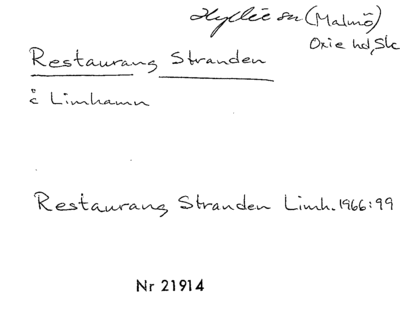 Hyllie sn (Malmö)
Oxie hd, Sk
Restaurang Stranden
i Limhamn
Restaurang Stranden Limh. 1966:99
Nr 21914